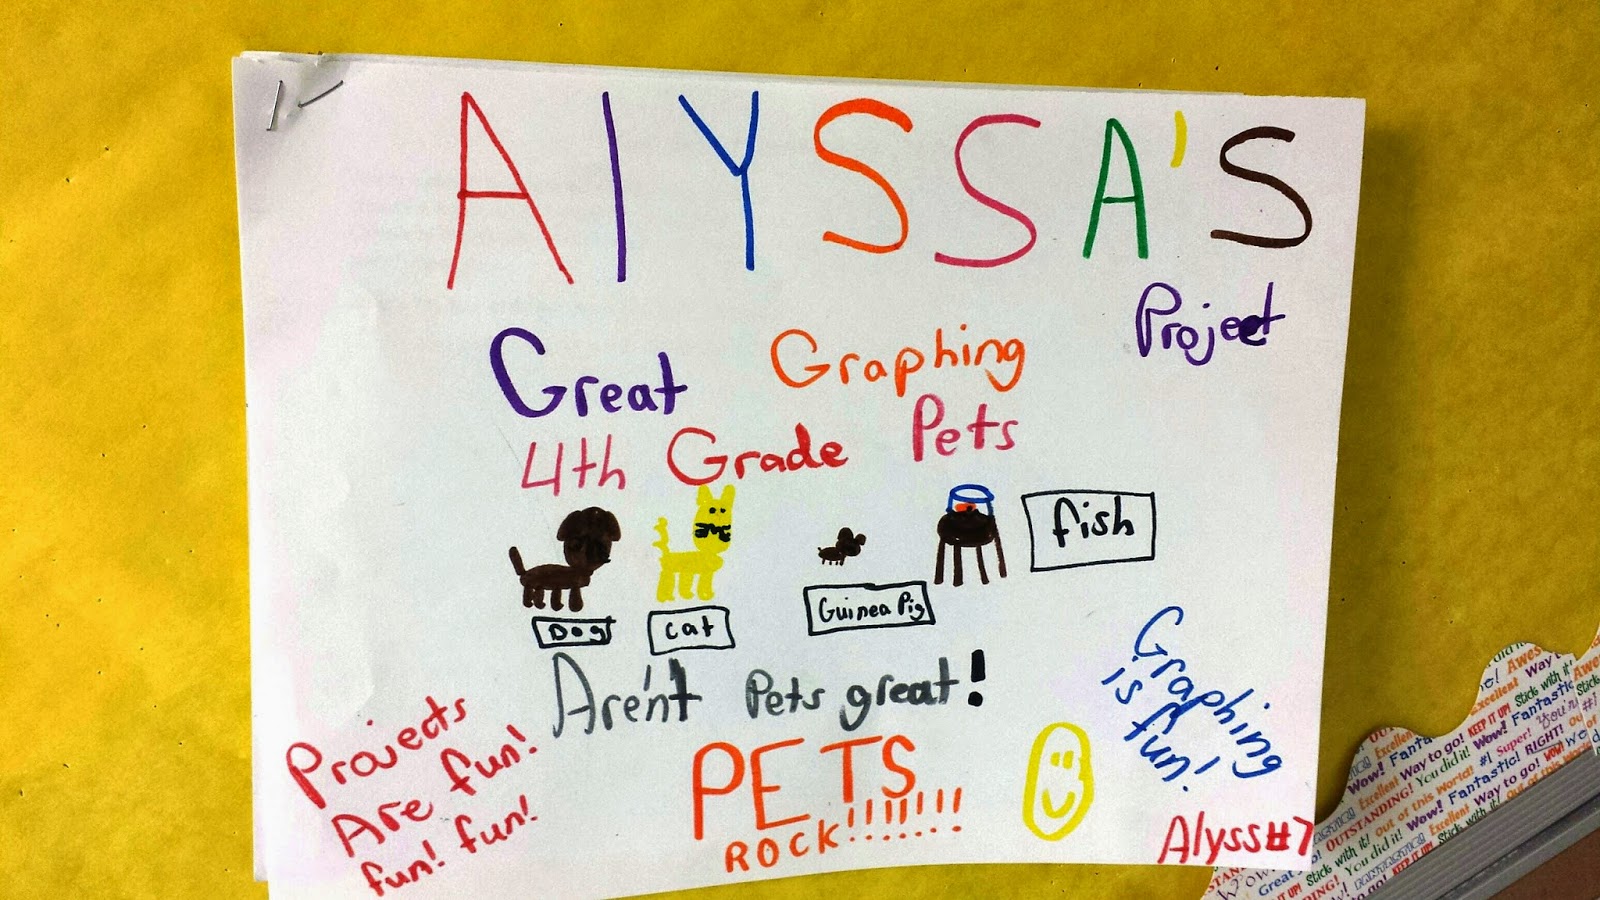 AlYSSA'S
Project
Great Graphing
4th Grade Pets
fish
Dog cat Guinea Pig
Aren't Pets great!
Graphing
is fun!
Projects
Are fun!
fun! fun!
PETS
ROCK!!!!!!!!
Alyss#7
Awes
Way t
Stick with it!
Excellent
KEEP IT UP!
Fantastic!
Wow!
Way to go!
You did it!
#1
Super!
RIGHT!
OUTSTANDING!
out of this world!